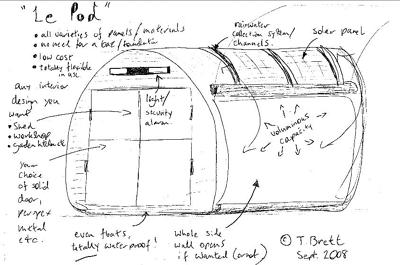 "Le Pod"
• all varieties of panels / materials
• no need for a base/foundation
• low cost
• totally flexible
in use
any interior
design you
want
• Shed
• workshop
• garden
your
choice
of solid
door,
perspex
metal
etc.
light/
security
alarm.
rainwater
collection system/
channels.
solar panel
voluminous
capacity
even floats,
totally waterproof!
whole side
wall opens
if wanted (or not)
© T. Brett
Sept. 2008